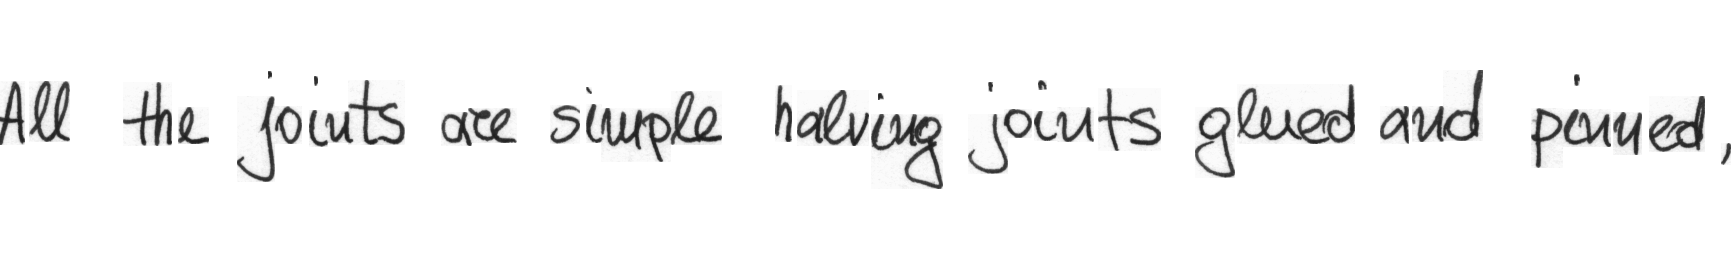 All the joints are simple halving joints glued and pinned,